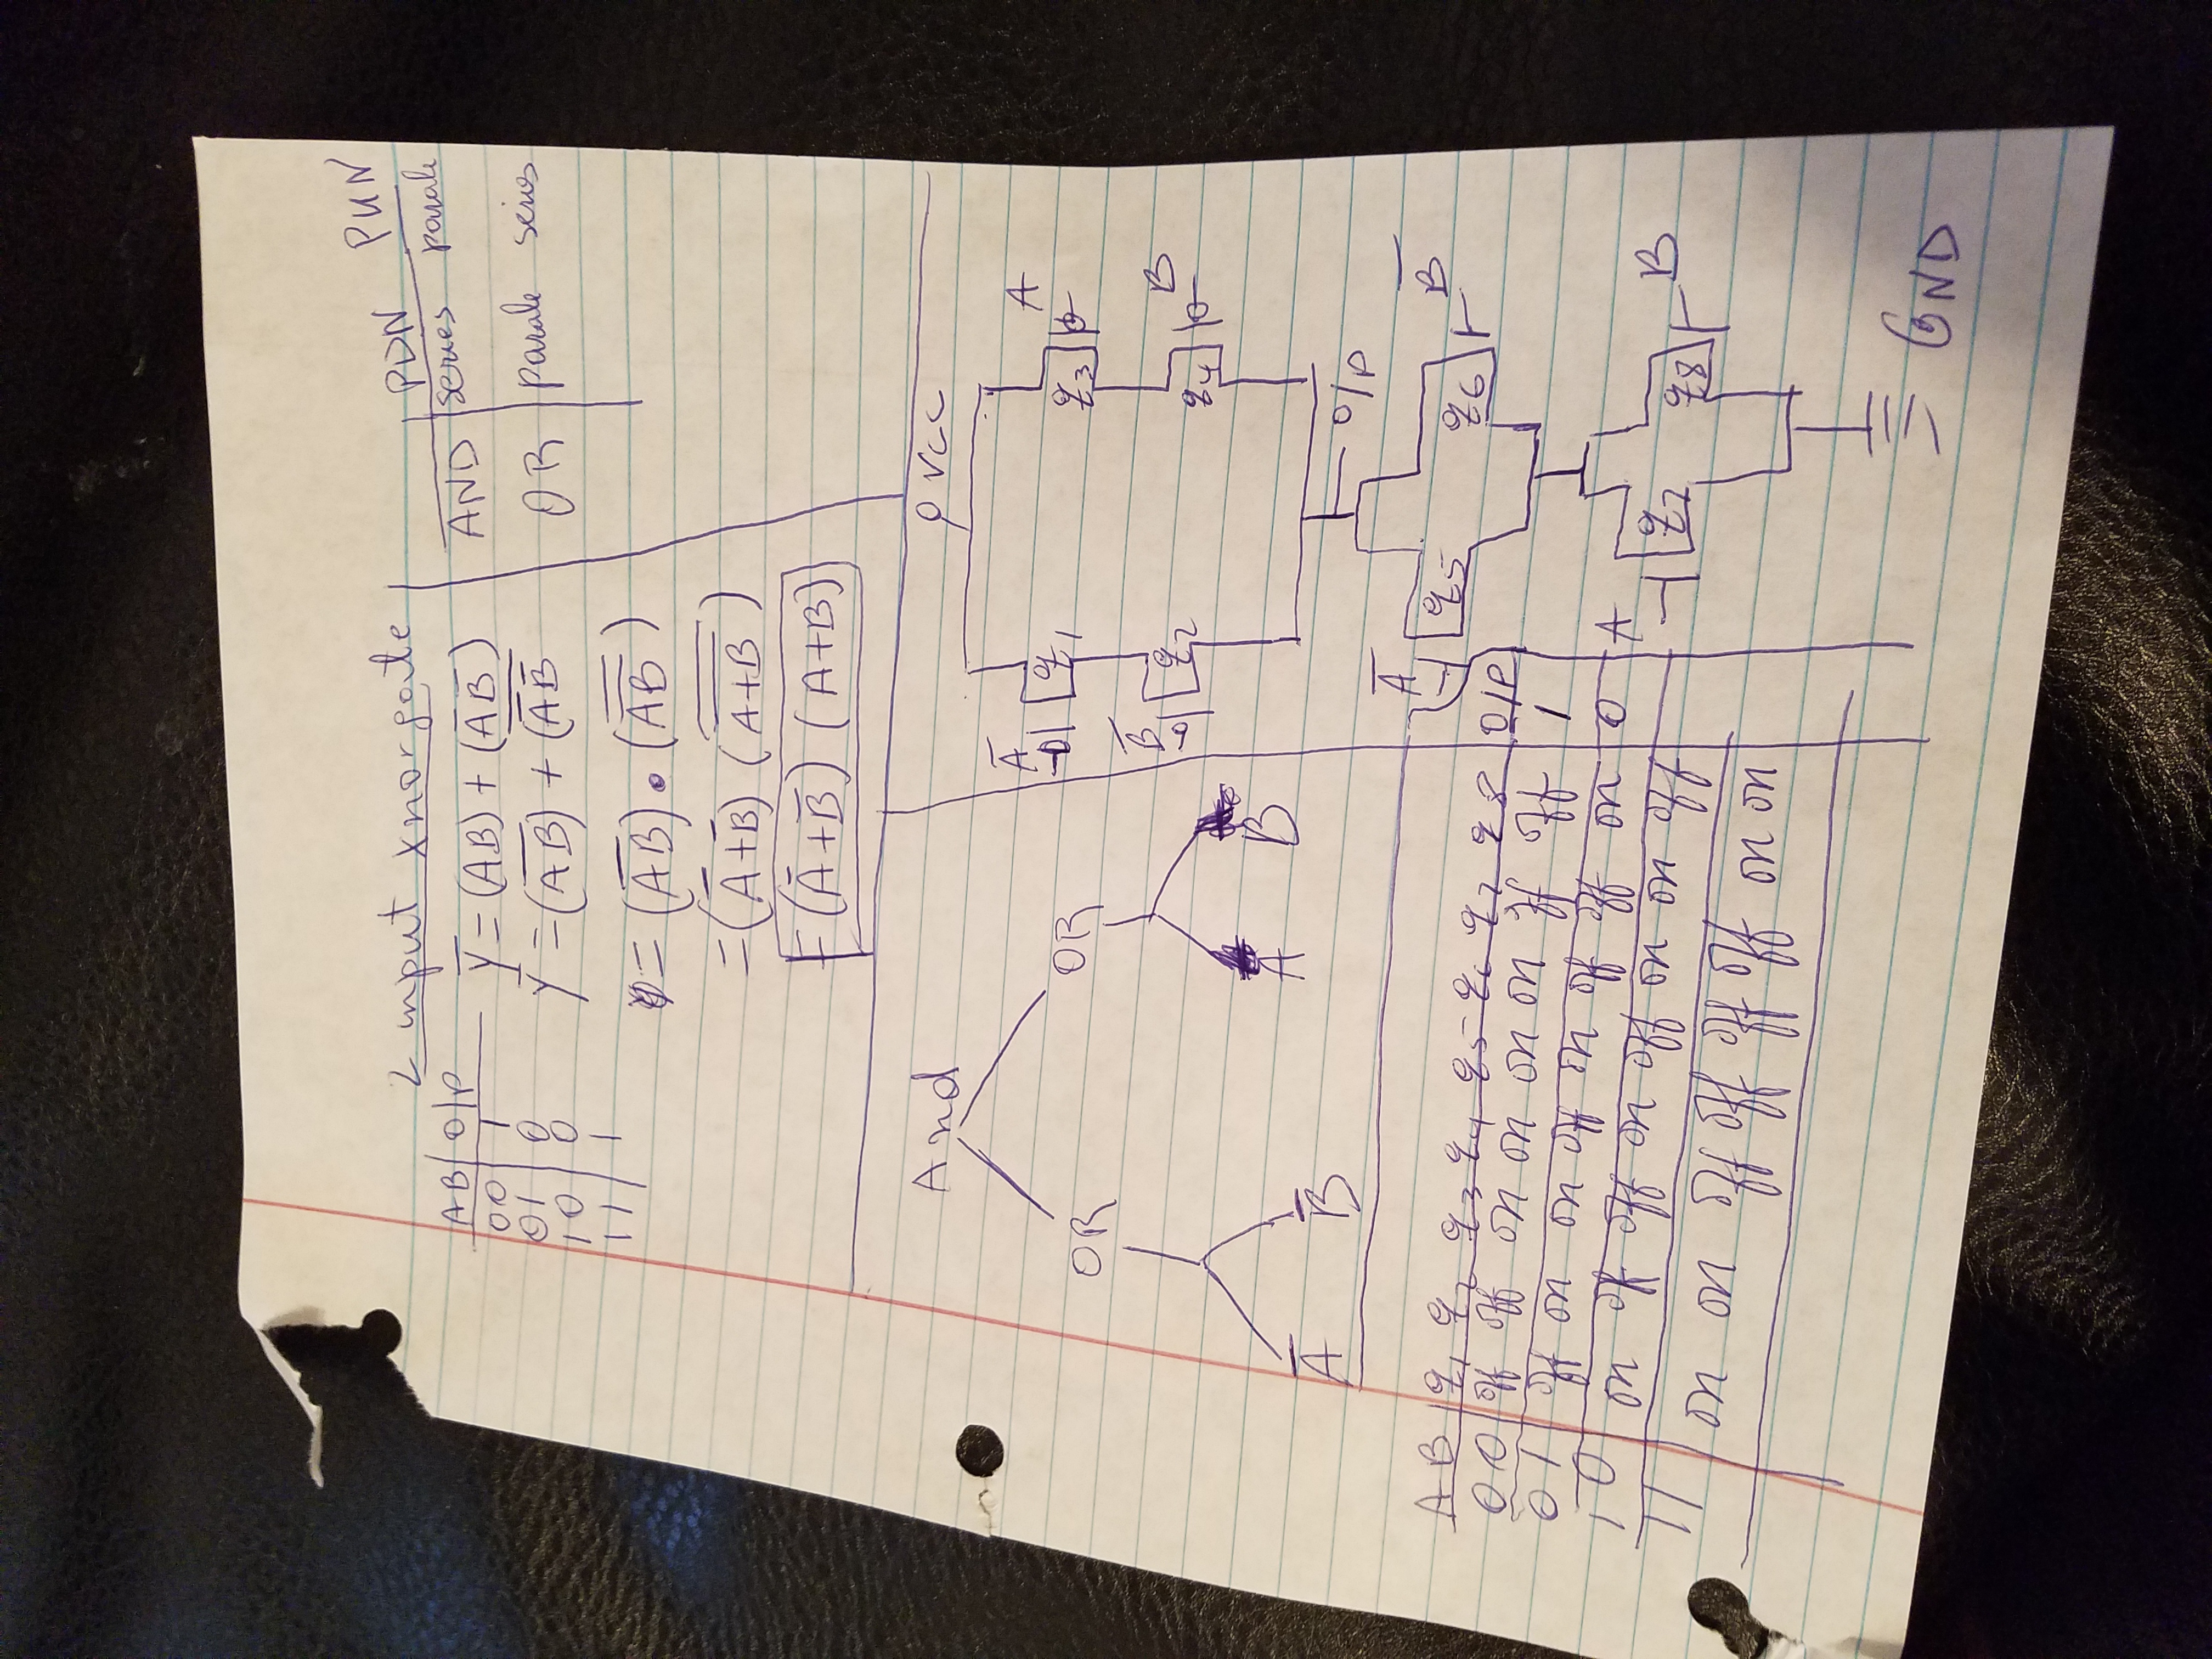 2 input xnor gate
AB O/P
00 1
01 0
10 0
11 1
Y̅ = (AB) + (A̅ B̅)
= (A̅B̅) • (A̅B̅)
= (A̅ + B̅) (A+B)
= (A̅ + B̅) (A+B)
PDN PUN
AND series parale
OR parale series
And
OR OR
A̅ B̅ A B
VCC
A̅ q1 q3 A
B̅ q2 q4 B
O/P
A̅ q5 q6 B̅
A q7 q8 B
GND
A B q1 q2 q3 q4 q5 q6 q7 q8 O/P
00 off off on on on on off off 1
01 off on on off on off off on 0
10 on off off on off on on off
11 on on off off off off on on